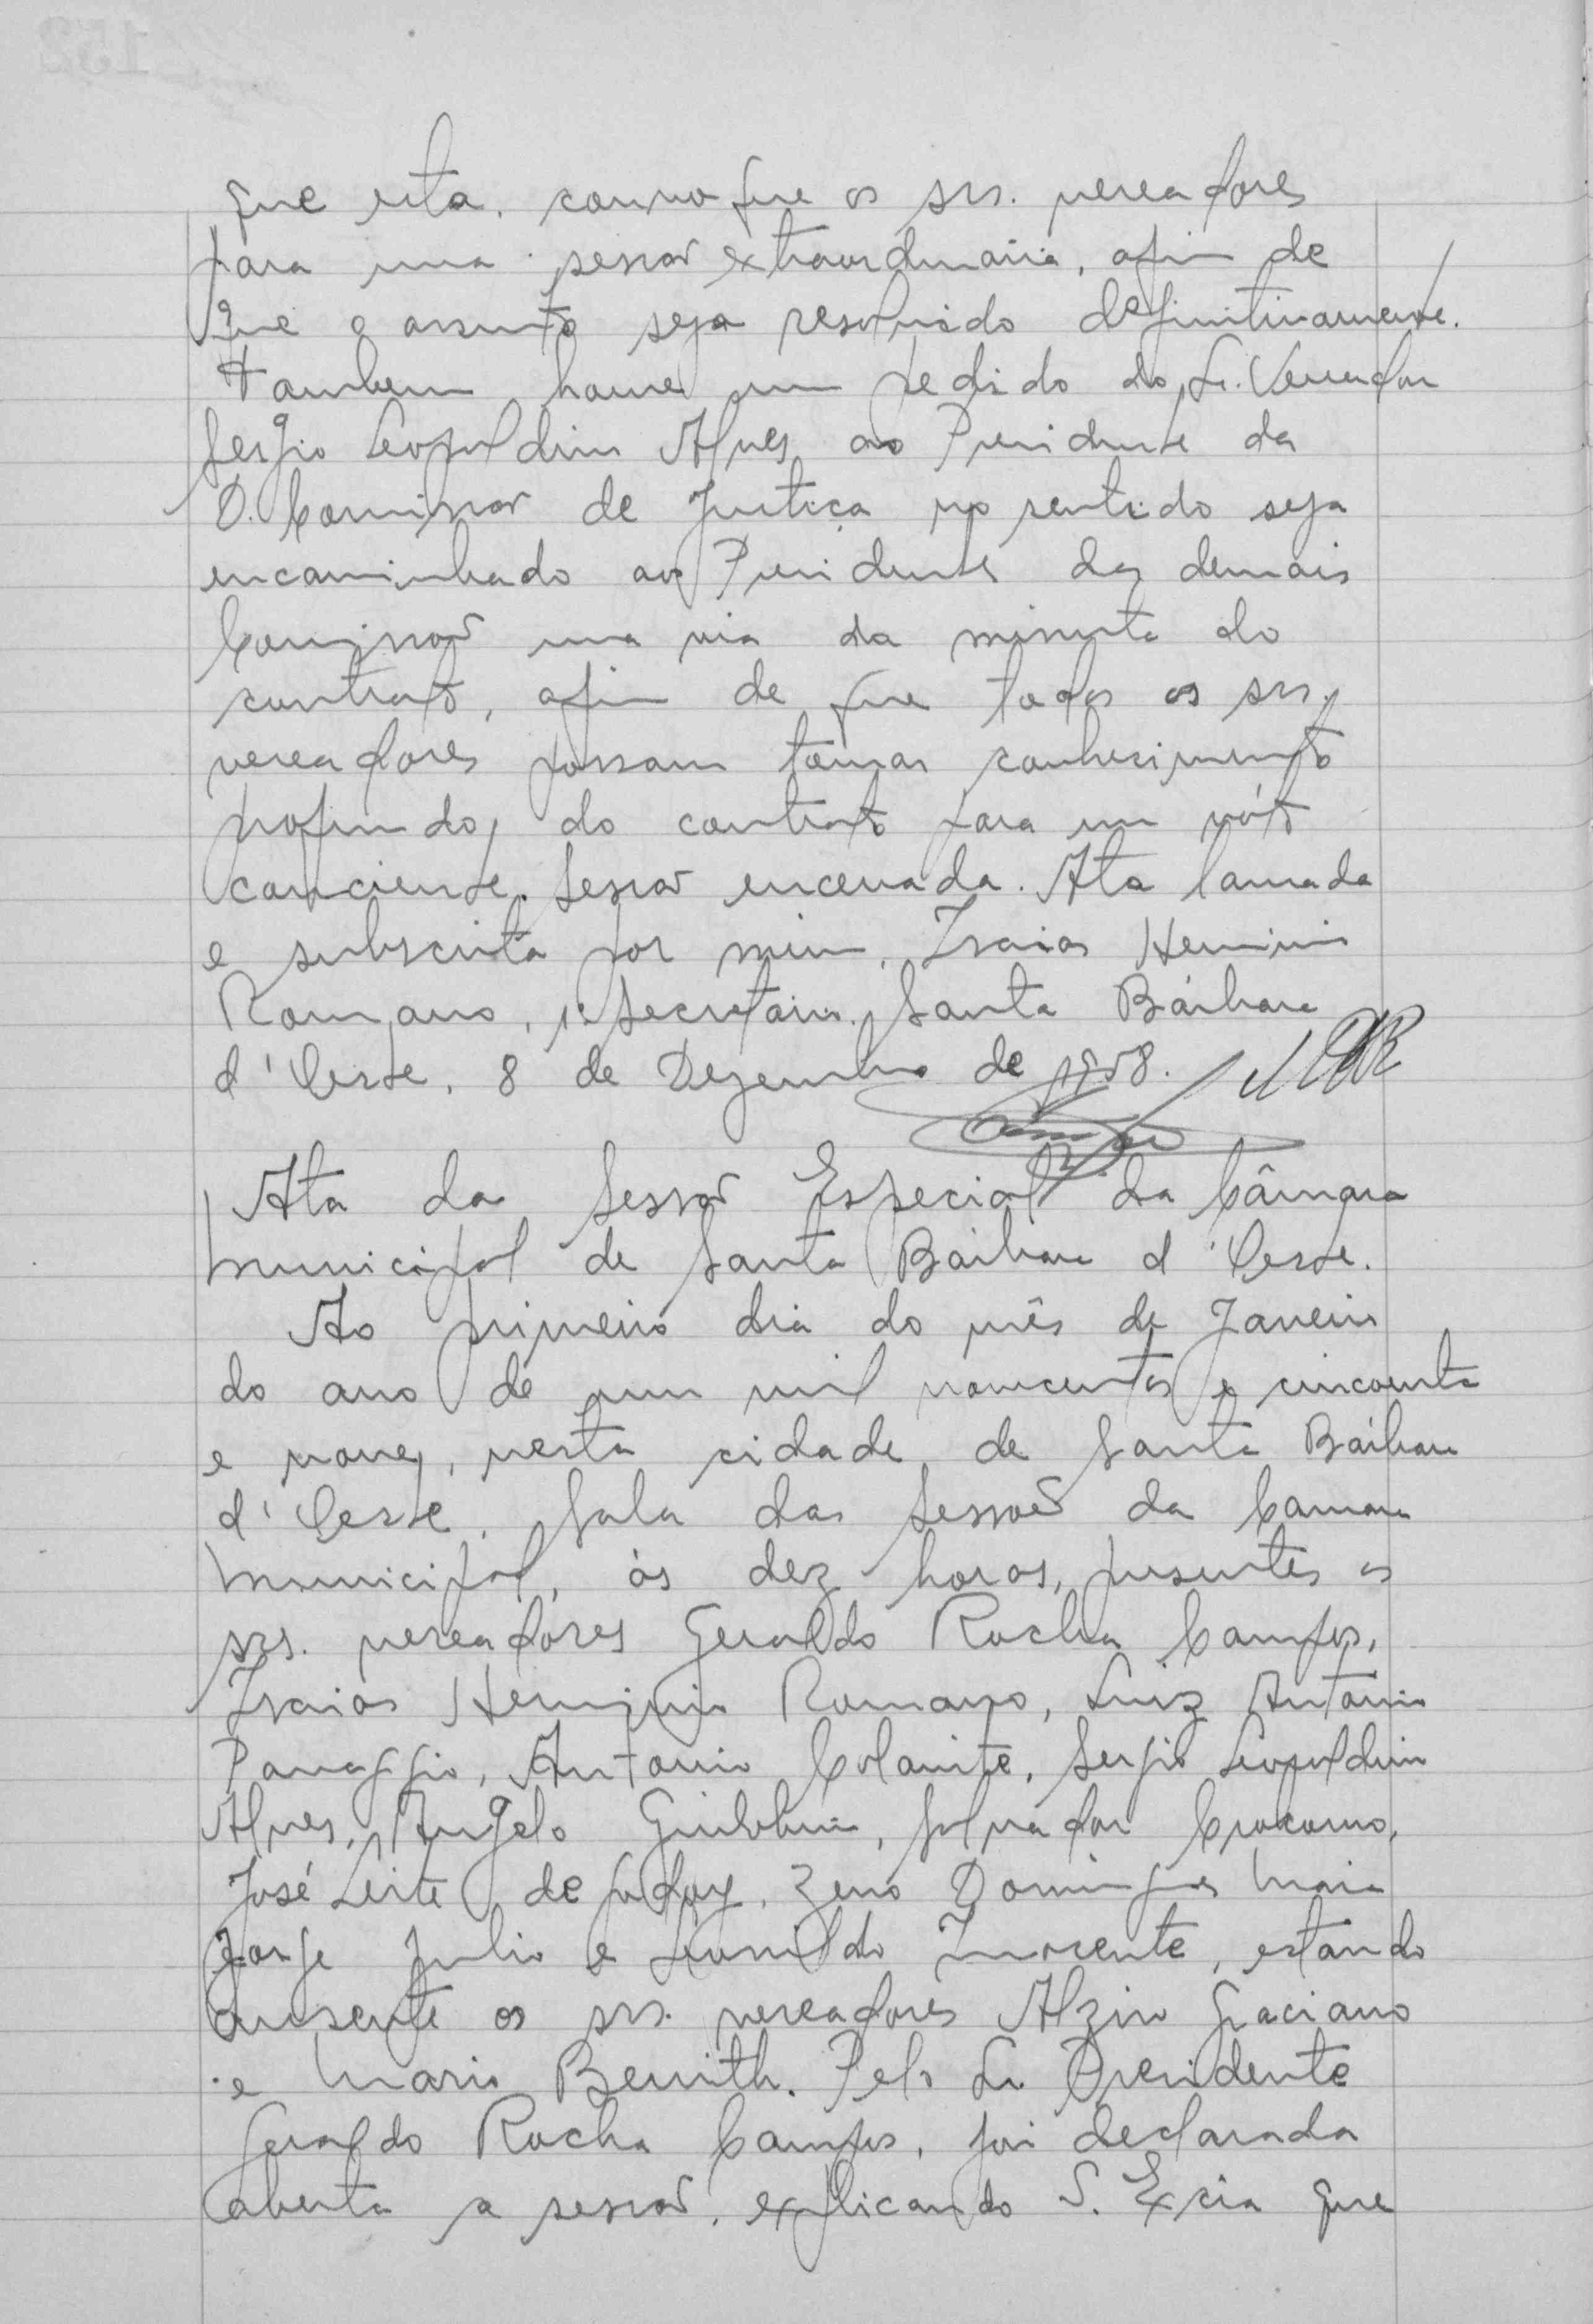 que esta, convoque os srs. vereadores
para uma sessão extraordinaria, afim de
que o assunto seja resolvido definitivamente.
Tambem houve um pedido do Sr. Vereador
Sergio Leopoldino Alves ao Presidente da
D. Comissão de Justiça no sentido seja
encaminhado aos Presidentes das demais
Comissões uma via da minuta do
contrato, afim de que todos os srs.
vereadores possam tomar conhecimento
profundo, do contrato para um vóto
conciente. Sessão encerrada. Ata lavrada
e subscrita por mim, Isaias Herminio
Romano, 1º Secretario. Santa Bárbara
d'Oeste, 8 de Dezembro de 1958.
Ata da Sessão Especial da Câmara
Municipal de Santa Bárbara d'Oeste.
Ao primeiro dia do mês de Janeiro
do ano de um mil novecentos e cincoenta
e nove, nesta cidade de Santa Bárbara
d'Oeste, Sala das Sessões da Camara
Municipal, às dez horas, presentes os
srs. vereadores Geraldo Rocha Campos,
Isaias Herminio Romano, Luiz Antonio
Panaggio, Antonio Sergio Leopoldino
Alves, Angelo Giubbina, Salvador
José Leite de Godoy, Zeno Domingues Maia
Jorge Julio e Leonildo Inocente, estando
ausente os srs. vereadores Alziro Graciano
e Mario Bernith. Pelo Sr. Presidente
Geraldo Rocha Campos, foi declarada
aberta a sessão, explicando S. Excia que